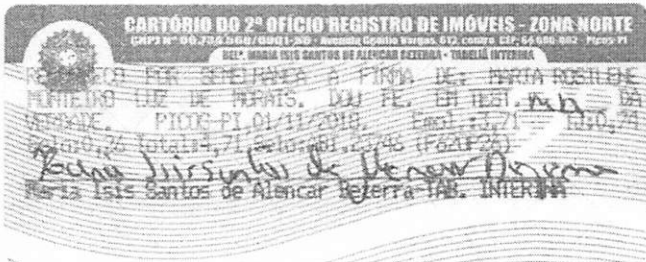 CARTÓRIO DO 2º OFÍCIO REGISTRO DE IMÓVEIS - ZONA NORTE
CNPJ Nº 06.734.560/0001-50 - Avenida Getúlio Vargas, 612, centro CEP: 64.600-002 Picos-PI
BELª. MARIA ISIS SANTOS DE ALENCAR BEZERRA - TABELIÃ INTERINA
RECONHEÇO POR SEMELHANÇA A FIRMA DE: MARIA ROSILENE
MONTEIRO LUZ DE MORAIS. DOU FE. EM TEST. DA
VERDADE. PICOS-PI, 01/11/2018. Emol.:3,71 TJ:0,74
Selo:0,26 Total:4,71
Maria Isis Santos de Alencar Bezerra-TAB. INTERINA